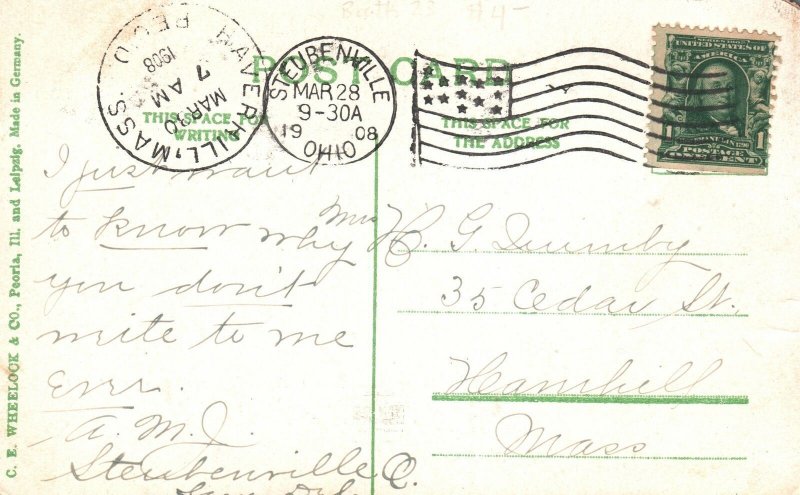 POST CARD
THIS SPACE FOR
WRITING
THIS SPACE FOR
THE ADDRESS
HAVERHILL, MASS.
REC'D
MAR 30
7 AM
1908
STEUBENVILLE
MAR 28
9-30A
19 08
OHIO
UNITED STATES OF
AMERICA
1 1
POSTAGE
ONE CENT
I just want
to know why
you don't
write to me
Ever.
A. M. J.
Steubenville O.
Mrs H. G. Quimby
35 Cedar St.
Haverhill
Mass
C. E. WHEELOCK & CO., Peoria, Ill. and Leipzig. Made in Germany.
$4-